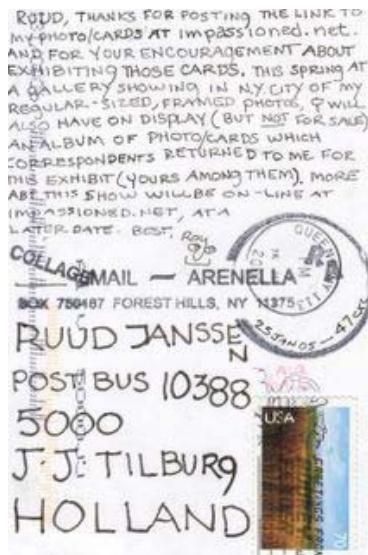 RUUD, THANKS FOR POSTING THE LINK TO
MY PHOTO/CARDS AT impassioned.net.
AND FOR YOUR ENCOURAGEMENT ABOUT
EXHIBITING THOSE CARDS. THIS SPRING AT
A GALLERY SHOWING IN N.Y. CITY OF MY
REGULAR-SIZED, FRAMED PHOTOS, I WILL
ALSO HAVE ON DISPLAY (BUT NOT FOR SALE)
AN ALBUM OF PHOTO/CARDS WHICH
CORRESPONDENTS RETURNED TO ME FOR
THIS EXHIBIT (YOURS AMONG THEM). MORE
ABT THIS SHOW WILL BE ON-LINE AT
IMPASSIONED.NET, AT A
LATER DATE. BEST, Roy
COLLAGE MAIL — ARENELLA
BOX 750187 FOREST HILLS, NY 11375
QUEENS, NY 113
PM
20
25 JAN 05 — 47
RUUD JANSSEN
POST BUS 10388
5000
J.J. TILBURg
HOLLAND
USA
70